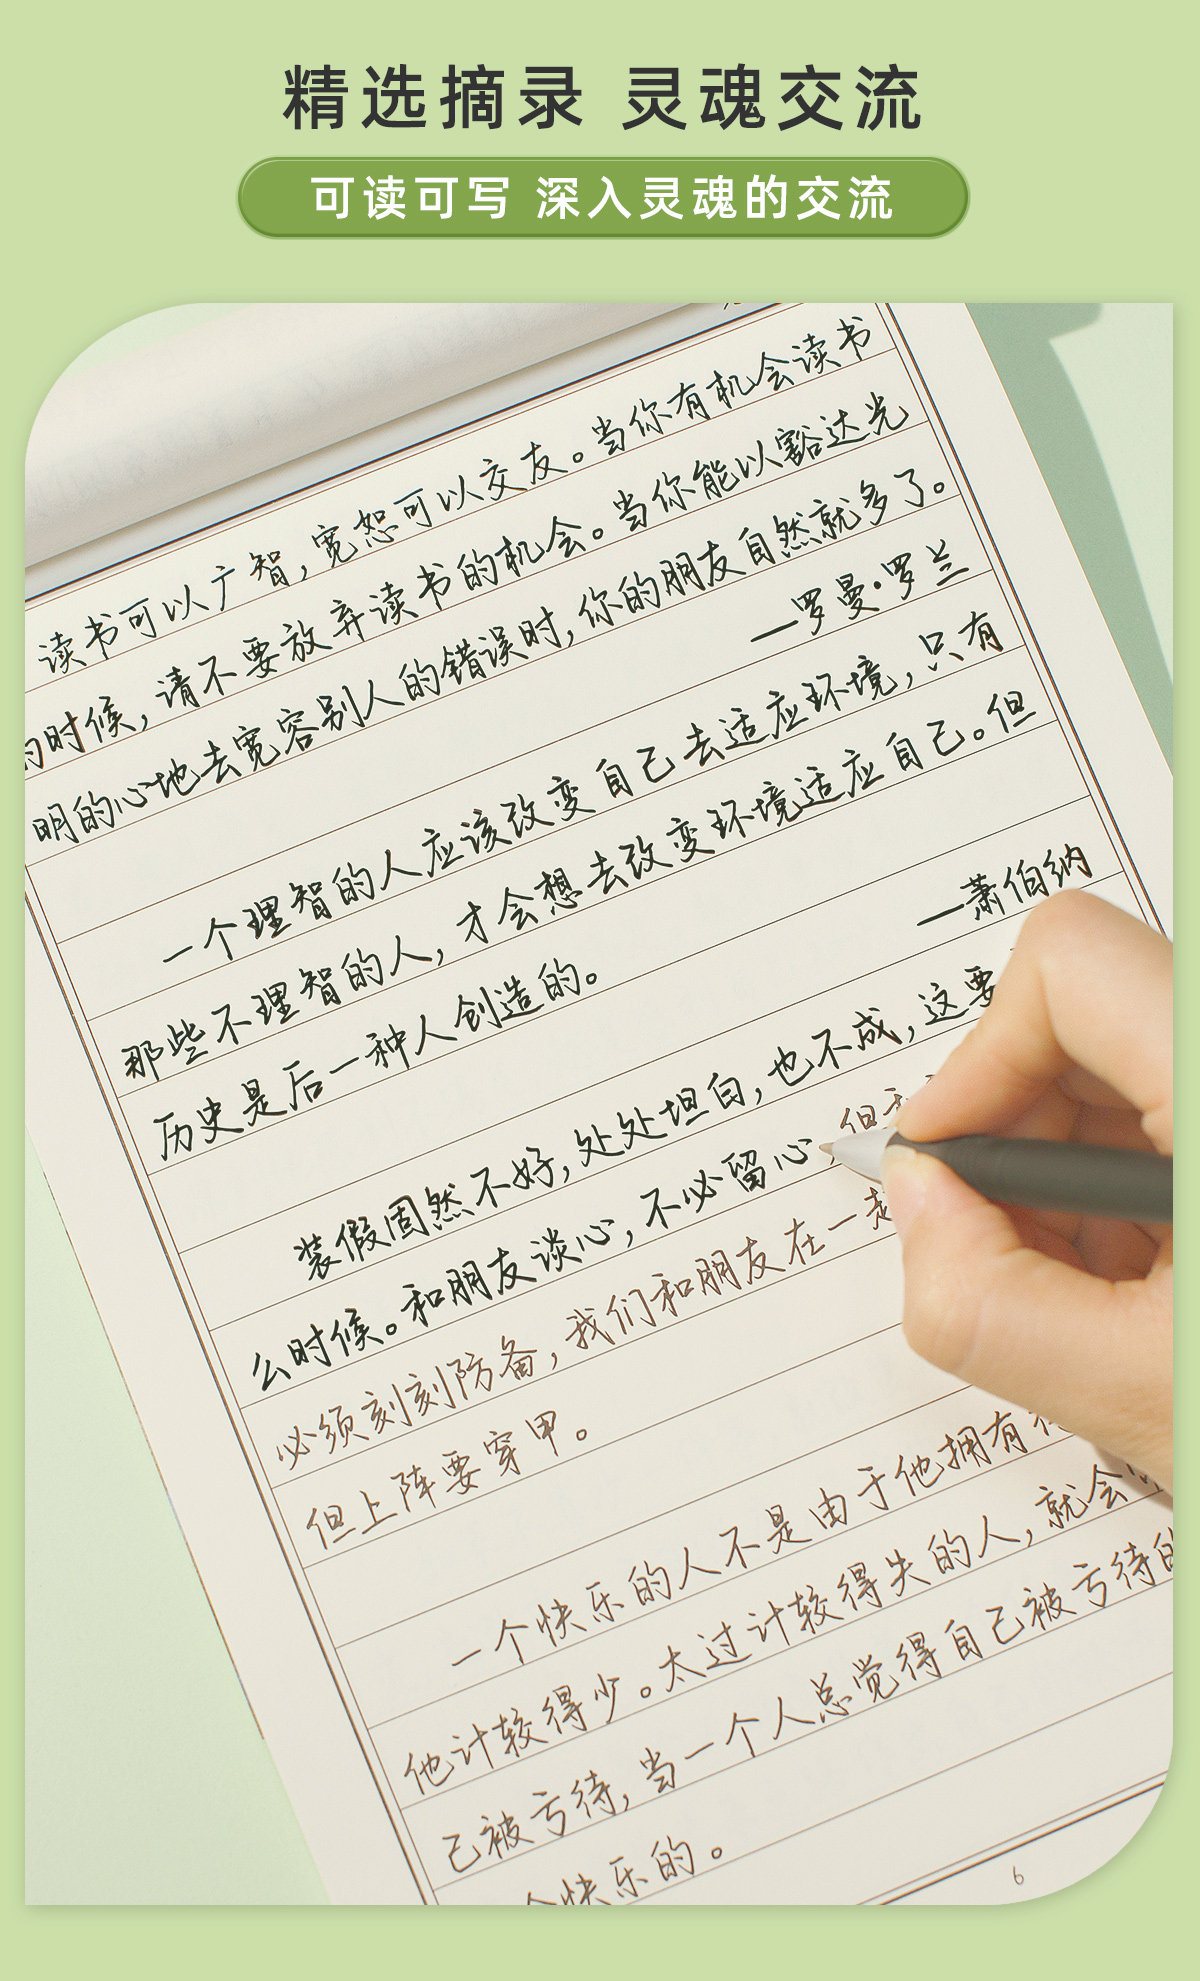 精选摘录 灵魂交流
可读可写 深入灵魂的交流
读书可以广智，宽恕可以交友。当你有机会读书
的时候，请不要放弃读书的机会。当你能以豁达光
明的心地去宽容别人的错误时，你的朋友自然就多了。
—罗曼·罗兰
一个理智的人应该改变自己去适应环境，只有
那些不理智的人，才会想去改变环境适应自己。但
历史是后一种人创造的。
—萧伯纳
装假固然不好，处处坦白，也不成，这要
么时候。和朋友谈心，不必留心，但和
必须刻刻防备，我们和朋友在一起
但上阵要穿甲。
一个快乐的人不是由于他拥有
他计较得少。太过计较得失的人，就会
己被亏待，当一个人总觉得自己被亏待的
个快乐的。
6